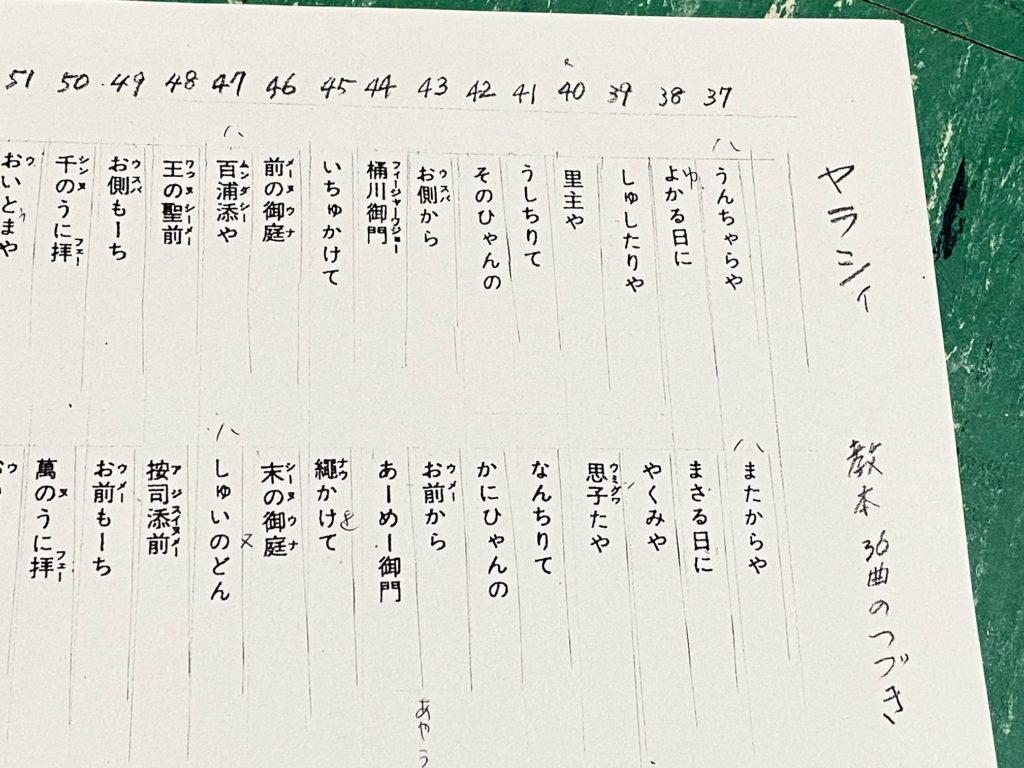 ヤラシィ
教本 36曲のつづき
37 38 39 40 41 42 43 44 45 46 47 48 49 50 51
うんちゃらや
よかる日に
ゆ
しゅしたりや
里主や
うしちりて
そのひゃんの
お側から
ウスバ
桶川御門
フィージャーウジョー
いちゅかけて
前の御庭
メーヌウナ
百浦添や
ムンダシー
王の聖前
ワッヌシーメー
お側もーち
ウスバ
千のうに拝
シンヌ フェー
おいとまや
ウ
またからや
まさる日に
やくみや
思子たや
ウミグワ
なんちりて
かにひゃんの
お前から
ウメー
あーめー御門
繩かけて
ナワ
を
末の御庭
シーヌウナ
しゅいのどん
ヌ
按司添前
アジスイヌメー
お前もーち
ウメー
萬のうに拝
ヌ フェー
あやう